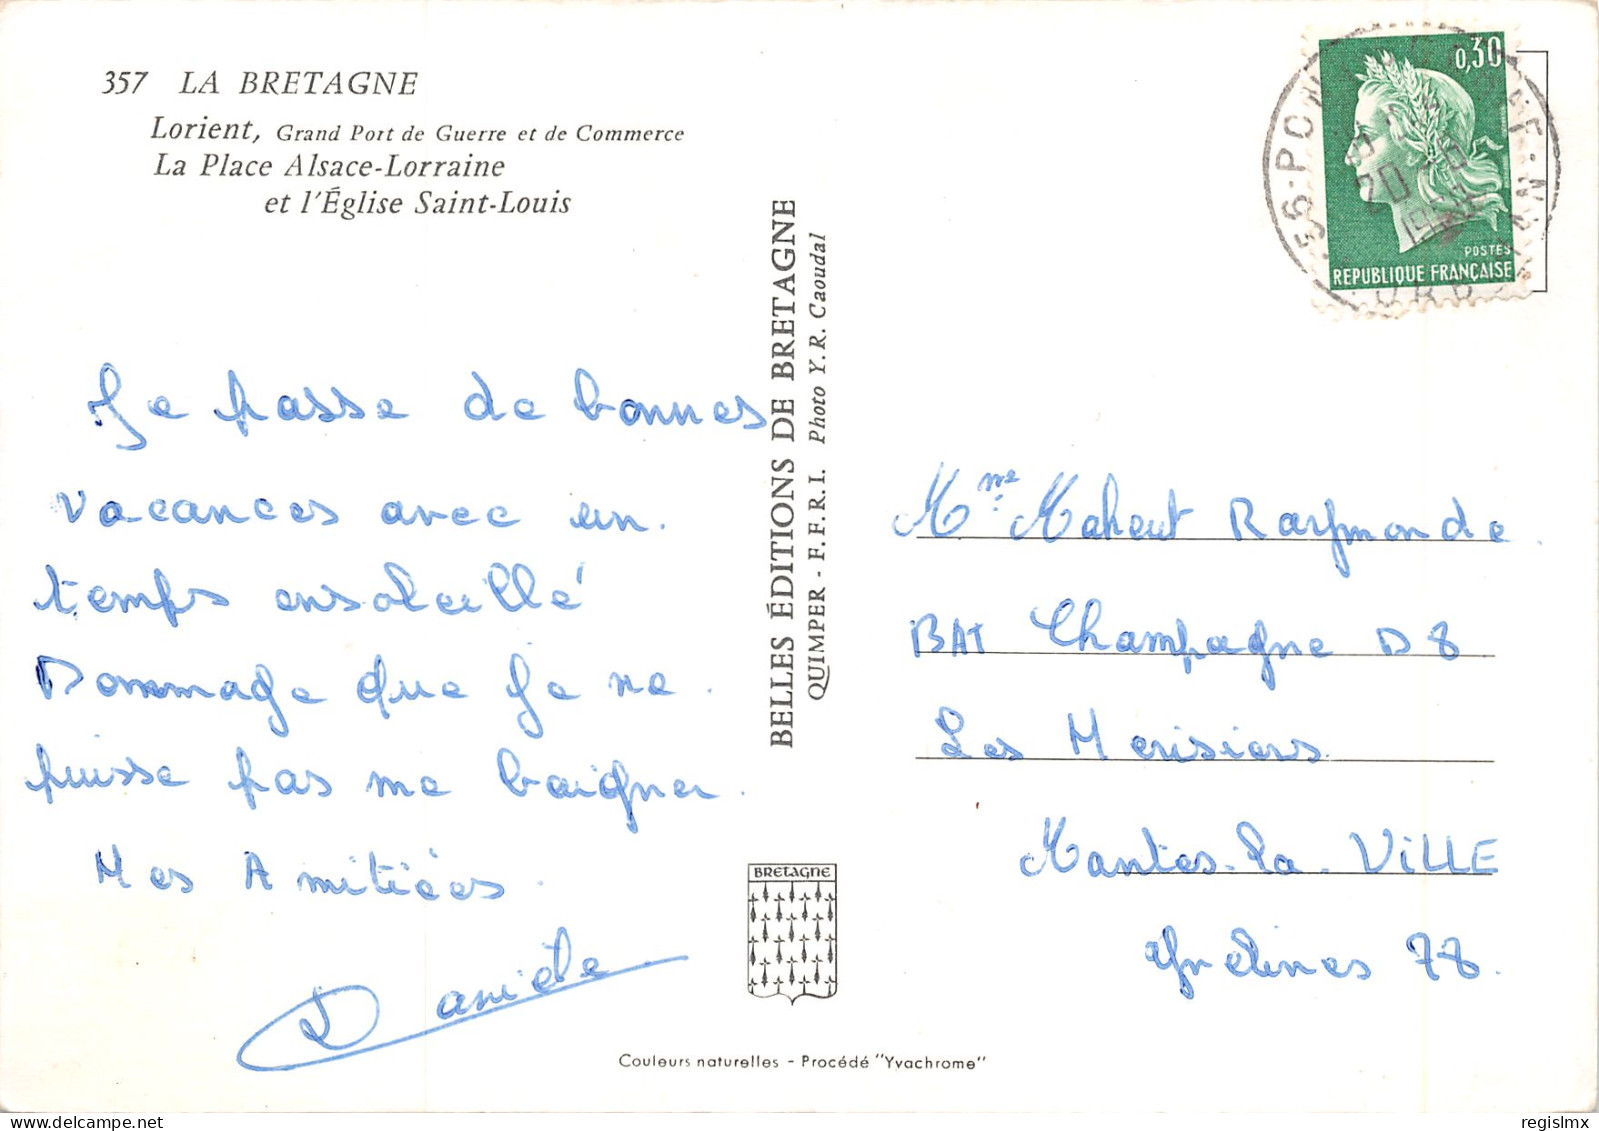 357 LA BRETAGNE
Lorient, Grand Port de Guerre et de Commerce
La Place Alsace-Lorraine
et l'Église Saint-Louis
Je passe de bonnes
vacances avec un.
temps ensoleillé
Dommage que je ne.
puisse pas me baigner.
Mes Amitiées.
Danièle
BELLES ÉDITIONS DE BRETAGNE
QUIMPER - F.F.R.I. Photo Y.R. Caoudal
BRETAGNE
Couleurs naturelles - Procédé "Yvachrome"
0,30
POSTES
REPUBLIQUE FRANÇAISE
Mme Maheut Raymonde.
BAT Champagne D8
Les Merisiers.
Mantes-la-VILLE
Yvelines 78.
regislmx